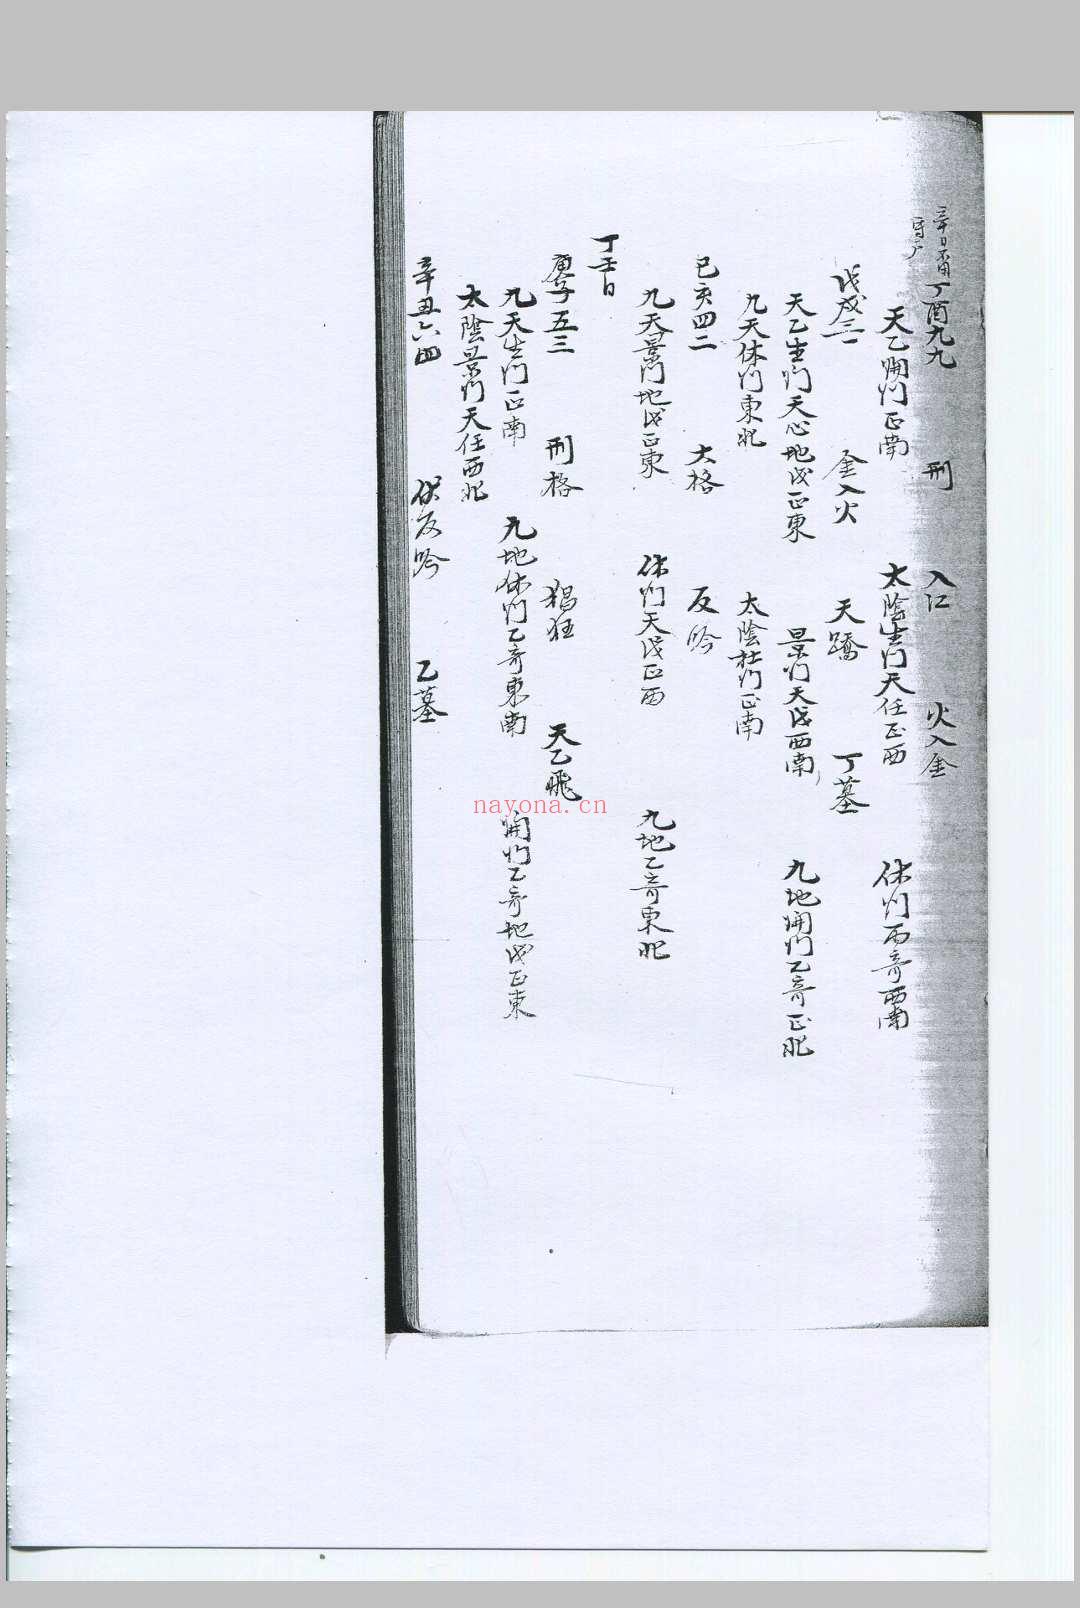 丁酉九九 刑 入江 火入金
天乙開門正南 太陰生門天任正西 休門丙奇西南
戊戌三一 金入火 天 丁墓
天乙生門天心地戊正東 景門天戊西南 九地開門乙奇正北
九天休門東北 太陰杜門正南
己亥四二 大格 反吟
九天景門地戊正東 休門天戊正西 九地乙奇東北
丁壬日
庚子五三 刑格 猖狂 天乙飛
九天生門正南 九地休門乙奇東南 開門乙奇地戊正東
太陰景門天任西北
辛丑六四 伏反吟 乙墓
nayona.cn